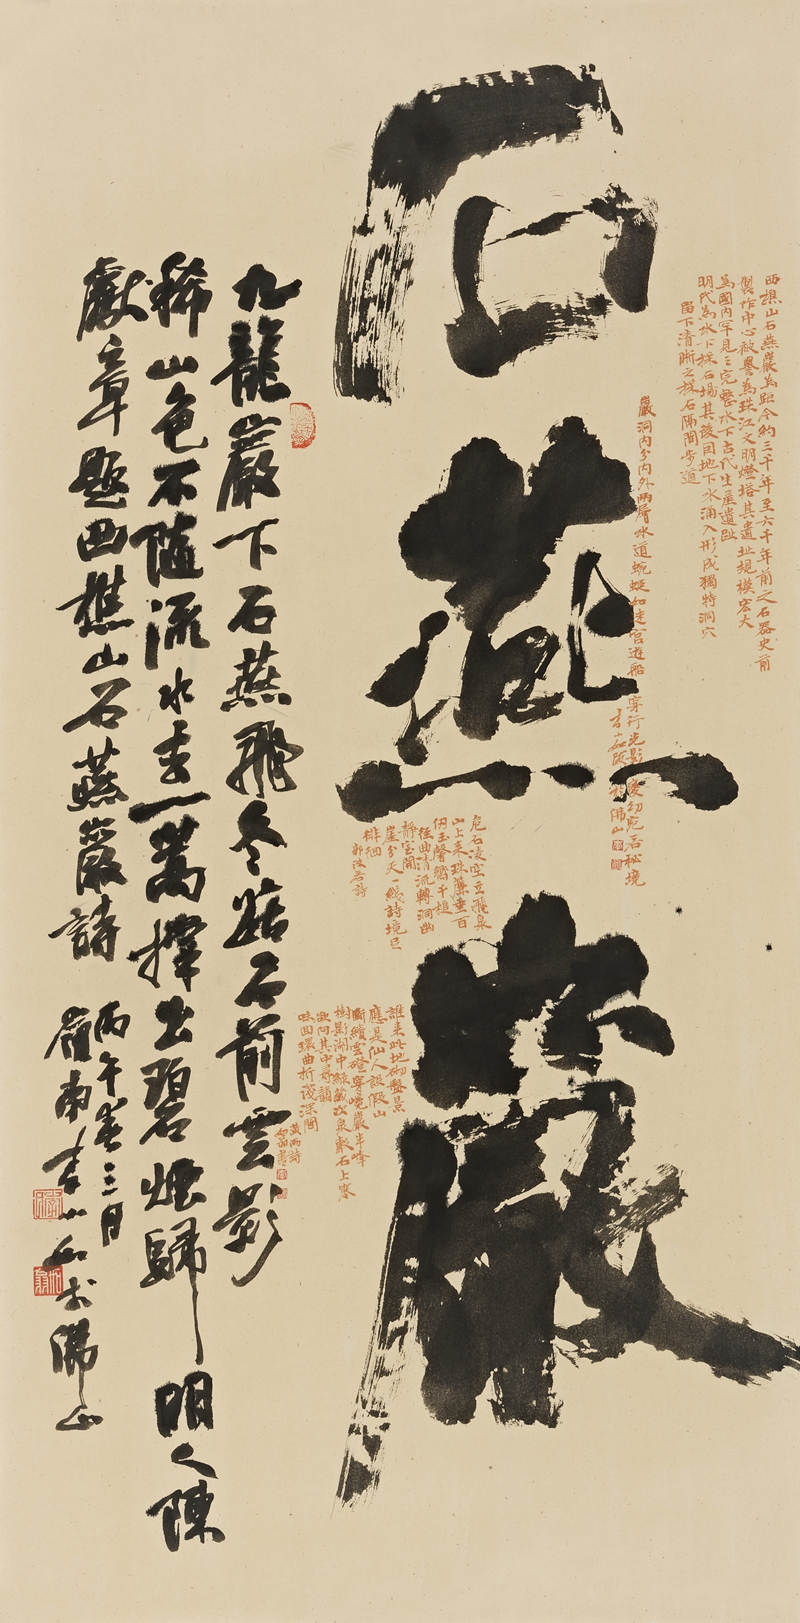 石燕巖
西樵山石燕巖為距今約三千年至六千年前之石器史前
製作中心被譽為珠江文明燈塔其遺址規模宏大
為國內罕見之完整水下古代生產遺址
明代為水下採石場其後因地下水涌入形成獨特洞穴
留下清晰之採石隔間步道
巖洞內分內外兩層水道蜿蜒如迷宮遊船
穿行光影變幻宛若秘境
於佛山
危石凌空立飛泉
山上來珠簾垂百
仞玉聲響千槌
徑曲清流轉洞幽
靜室開
崖分天一綫詩境已
徘徊
郭沫若詩
誰來此地砌盤景
應是仙人設假山
斷續雲磴穿曉巖半峰
樹影湖中綠戲水泉聲石上寒
欲向其中尋韻
味回環曲折復深關
黃雨詩
九龍巖下石燕飛冬菇石前雲影
稀山色不隨流水去一篙撐出碧煙歸 明人陳
獻章題西樵山石燕巖詩
丙午春三月
嶺南李小如於佛山